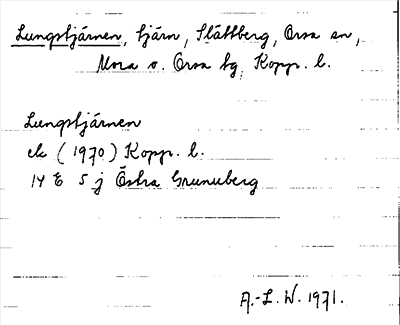 Lungstjärnen, tjärn, Slättberg, Orsa sn,
Mora o. Orsa tg, Kopp. l.
Lungstjärnen
ek (1970) Kopp. l.
14 E 5 j Östra Grunuberg
A.-L. W. 1971.